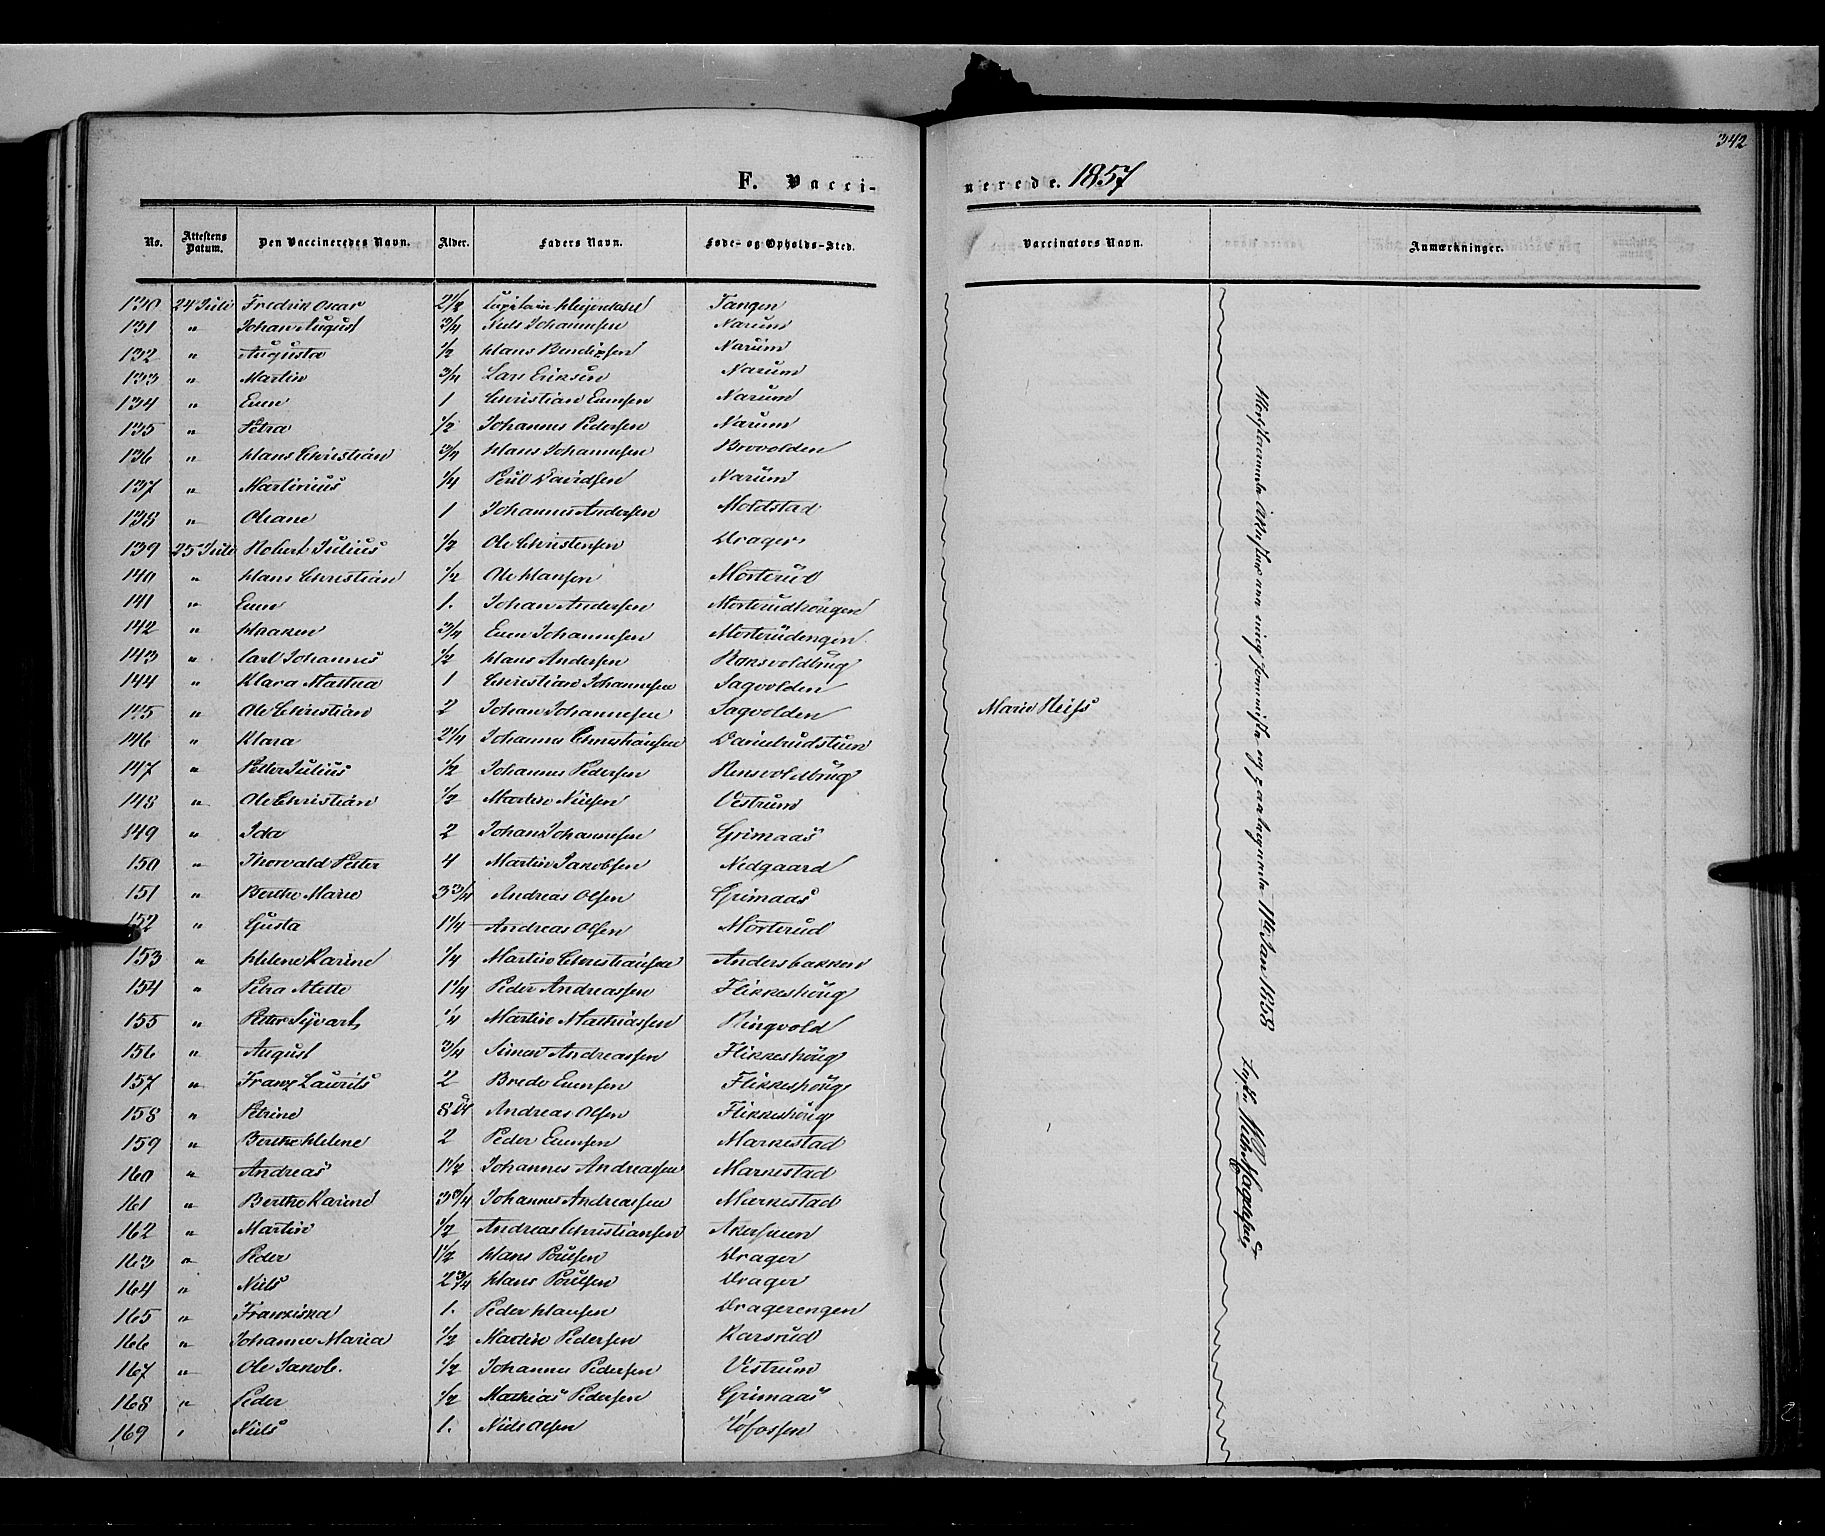 342
F. Vacci-
nerede. 1857
No. Attestens Datum. Den Vaccineredes Navn. Alder. Faders Navn. Føde- og Opholds-Sted. Vaccinators Navn. Anmærkninger.
130 24 Juli Fredrik Oscar 2 1/2 Capitain Tangen
131 " Johan August 3/4 Niels Johannesen Narum
132 " Augusta 1/2 Hans Bendixsen Narum
133 " Martin 3/4 Lars Eriksen Narum
134 " Even 1 Christian Evensen Narum
135 " Petra 1/2 Johannes Pedersen Narum
136 " Hans Christian 3/4 Hans Johannesen Brovolden
137 " Martinius 1/4 Poul Davidsen Narum
138 " Oliane 1 Johannes Andersen Moldstad
139 25 Juli Robert Julius 1/2 Ole Christensen Drager
140 " Hans Christian 1/2 Ole Hansen Morterud
141 " Even 1. Johan Andersen Morterudhougen
142 " Haaken 3/4 Even Johannesen Morterudengen
143 " Carl Johannes 1/2 Hans Andersen Roksvoldbug
144 " Klara Mathea 1 Christian Johannesen Sagvolden
145 " Ole Christian 2 Johan Johannesen Sagvolden Marie Heiss
146 " Klara 2 1/4 Johannes Christiansen
147 " Petter Julius 1/2 Johannes Pedersen
148 " Ole Christian 1/2 Martin Nielsen Vestrum
149 " Ida 2 Johan Johannesen Grimaas
150 " Thorvald Petter 4 Martin Jakobsen Nedgaard
151 " Berthe Marie 3 3/4 Andreas Olsen Grimaas
152 " Gusta 1 1/4 Andreas Olsen Morterud
153 " Helene Karine 1/4 Martin Christiansen Andersbakken
154 " Petra Mette 1 1/4 Peder Andreassen Flikkeshoug
155 " Petter Syvart 1/4 Martin Mathiassen Ringvold
156 " August 3/4 Simen Andreassen Flikkeshoug
157 " Franz Laurits 2 Brede Evensen Flikkeshoug
158 " Petrine 8 U Andreas Olsen Flikkeshoug
159 " Berthe Helene 2 Peder Evensen Markestad
160 " Andreas 1 1/2 Johannes Andreassen Markestad
161 " Berthe Karine 3 3/4 Johannes Andreassen Markestad
162 " Martin 1/2 Andreas Christiansen
163 " Peder 1 1/2 Hans Poulsen Drager
164 " Niels 2 3/4 Hans Poulsen Drager
165 " Franziska 1. Peder Hansen Dragerengen
166 " Johanne Maria 1/2 Martin Pedersen Karsrud
167 " Ole Jakob. 1/2 Johannes Pedersen Vestrum
168 " Peder 1/2 Mathias Pedersen Grimaas
169 " Niels 1. Niels Olsen Höfossen
11te Jan 1858
2